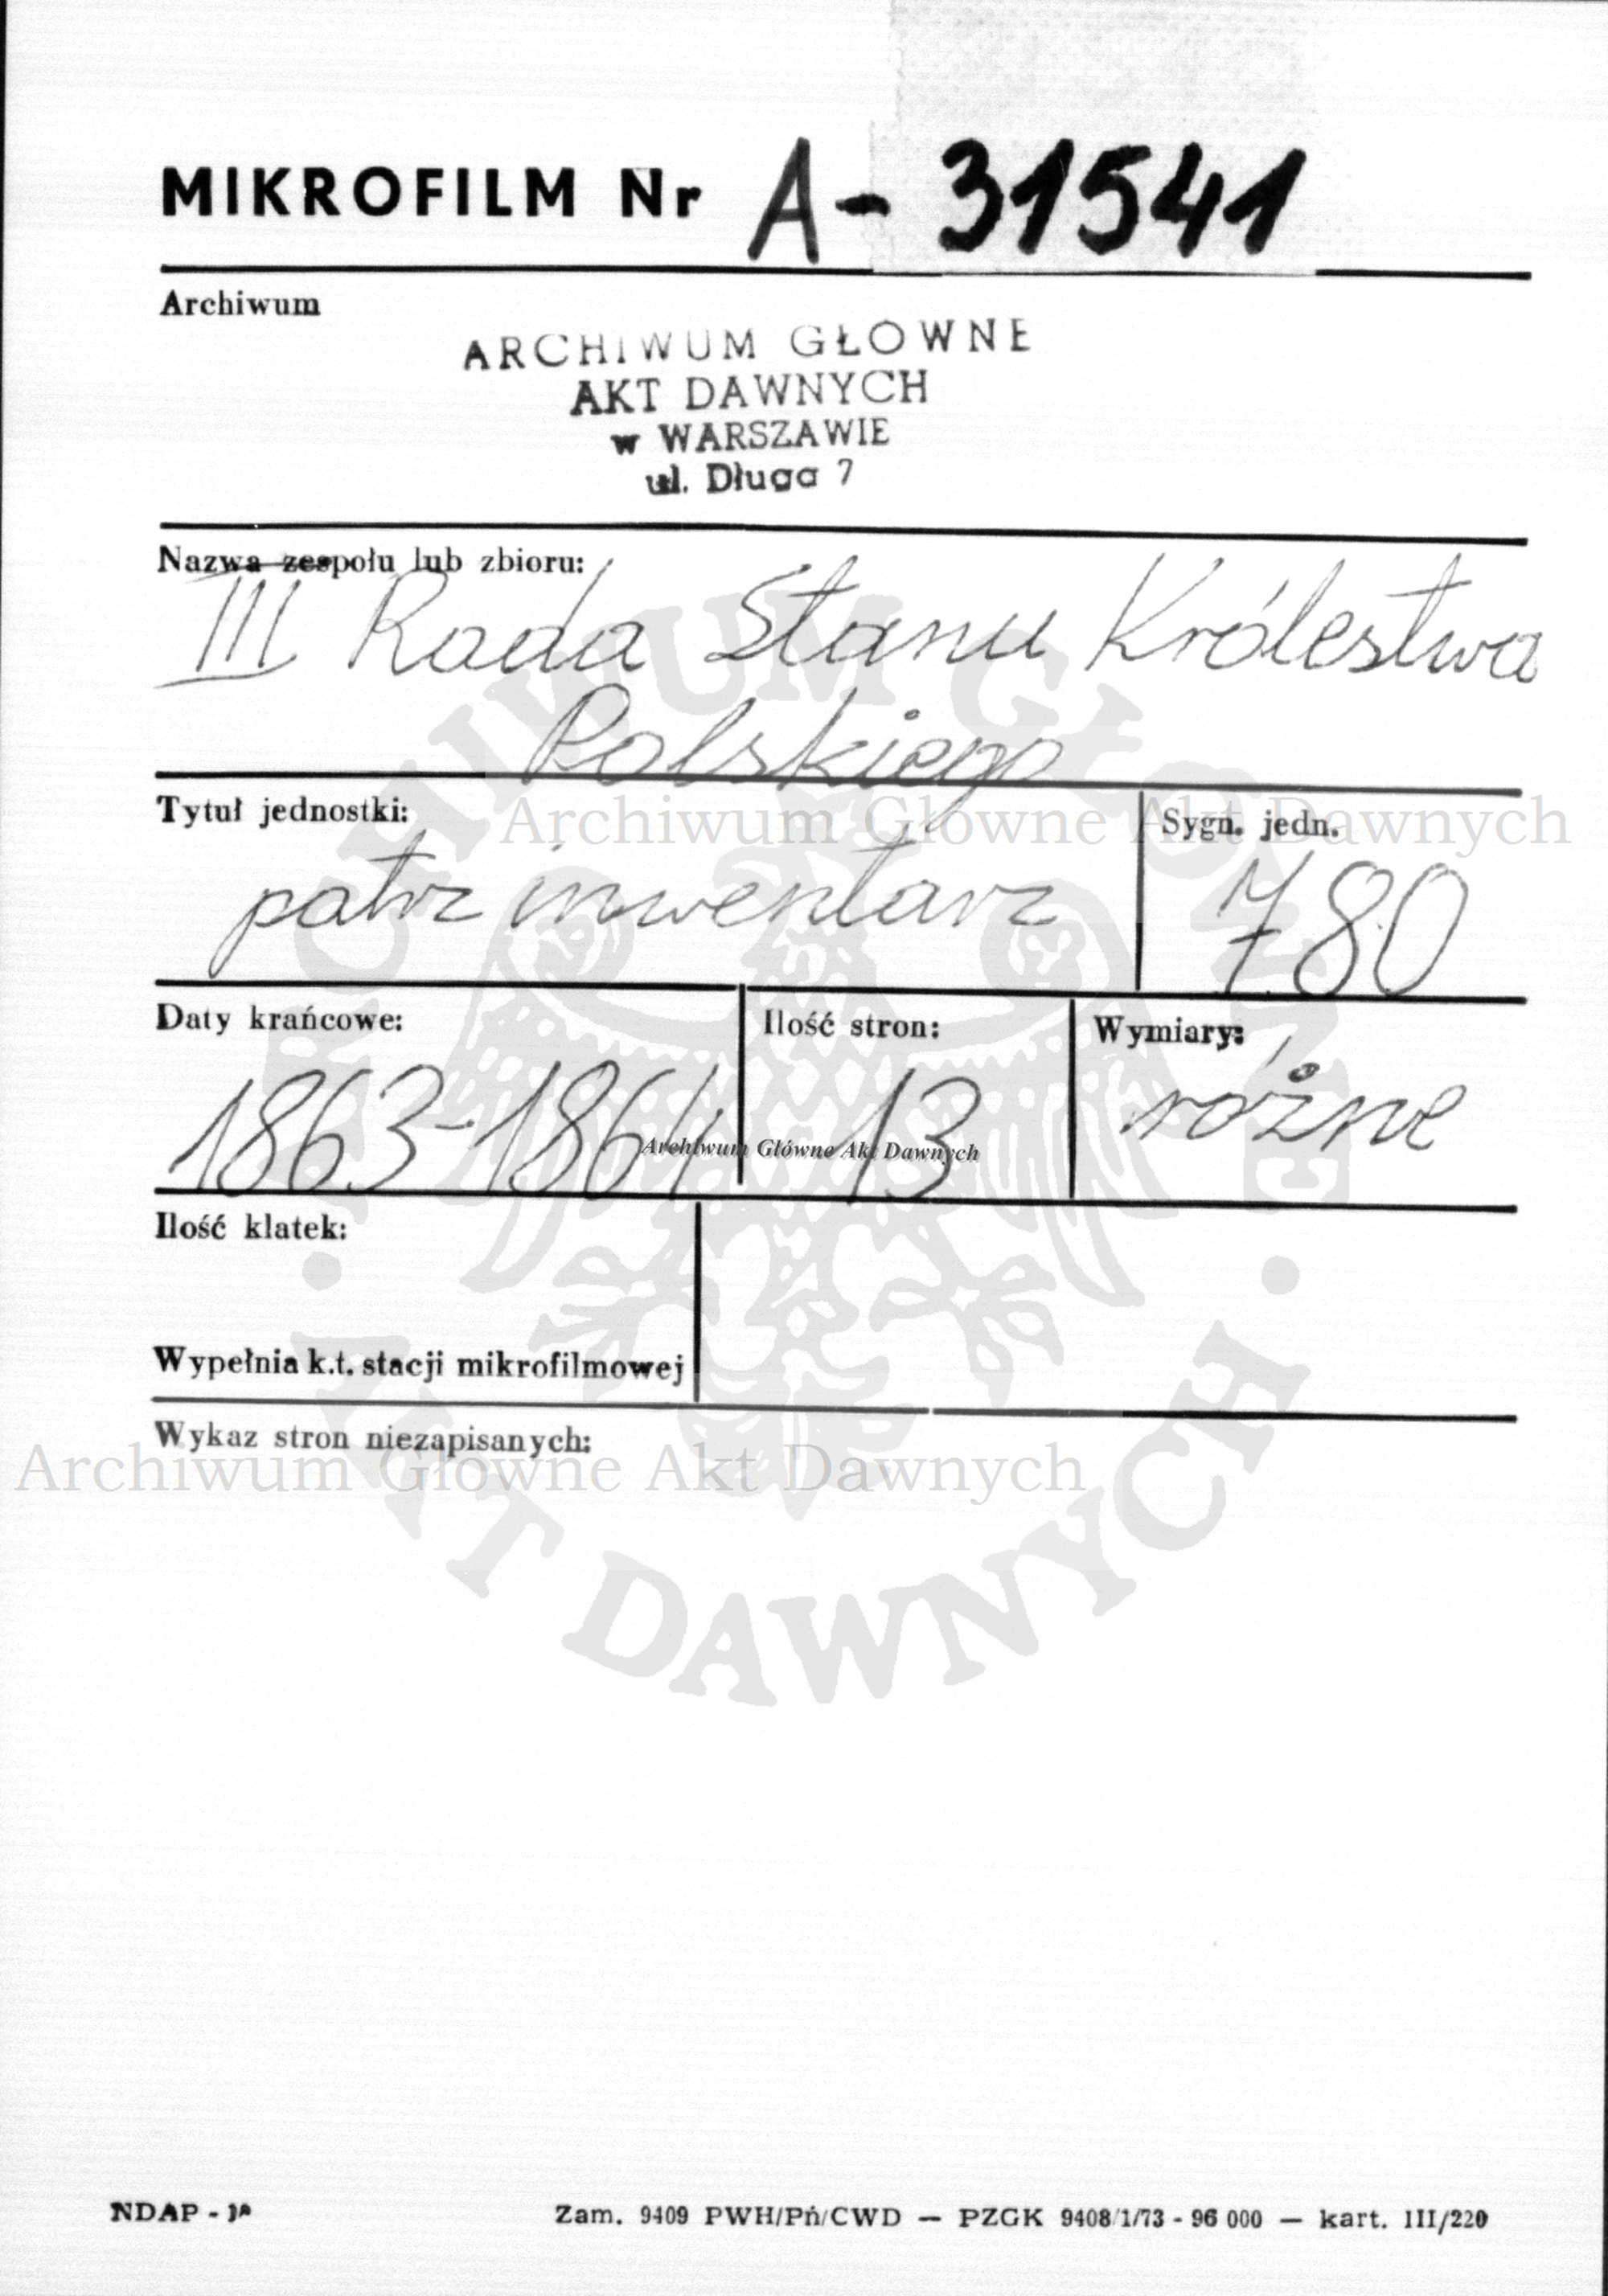 MIKROFILM Nr A-31541
Archiwum
ARCHIWUM GŁOWNE
AKT DAWNYCH
w WARSZAWIE
ul. Długa 7
Nazwa zespołu lub zbioru:
III Rada Stanu Królestwa
Polskiego
Tytuł jednostki:
Sygn. jedn.
patrz inwentarz
780
Daty krańcowe:
Ilość stron:
Wymiary:
1863-1864
13
różne
Ilość klatek:
Wypełnia k.t. stacji mikrofilmowej
Wykaz stron niezapisanych:
NDAP -
Zam. 9409 PWH/Pń/CWD — PZGK 9408/1/73 - 96 000 — kart. III/220
Archiwum Główne Akt Dawnych
Archiwum Główne Akt Dawnych
Archiwum Główne Akt Dawnych
ARCHIWUM GŁÓWNE
AKT DAWNYCH